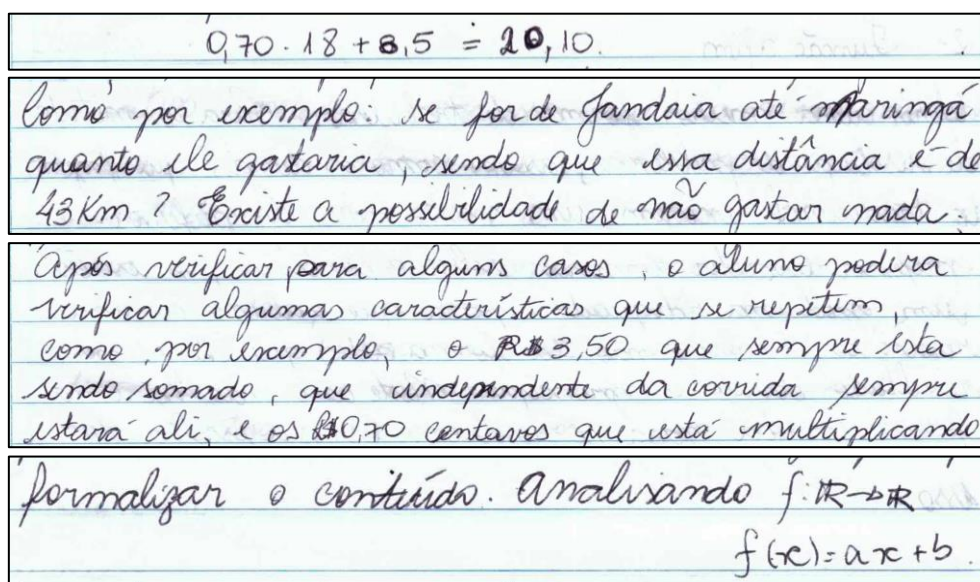 0,70 · 18 + 8,5 = 20,10.
Como por exemplo: se for de Jandaia até Maringá
quanto ele gastaria, sendo que essa distância é de
43 Km? Existe a possibilidade de não gastar nada.
Após verificar para alguns casos, o aluno poderá
verificar algumas características que se repetem,
como por exemplo, o R$ 3,50 que sempre está
sendo somado, que independente da corrida sempre
estará ali, e os R$0,70 centavos que está multiplicando
formalizar o conteúdo. Analisando f: ℝ→ℝ
f(x)=ax+b